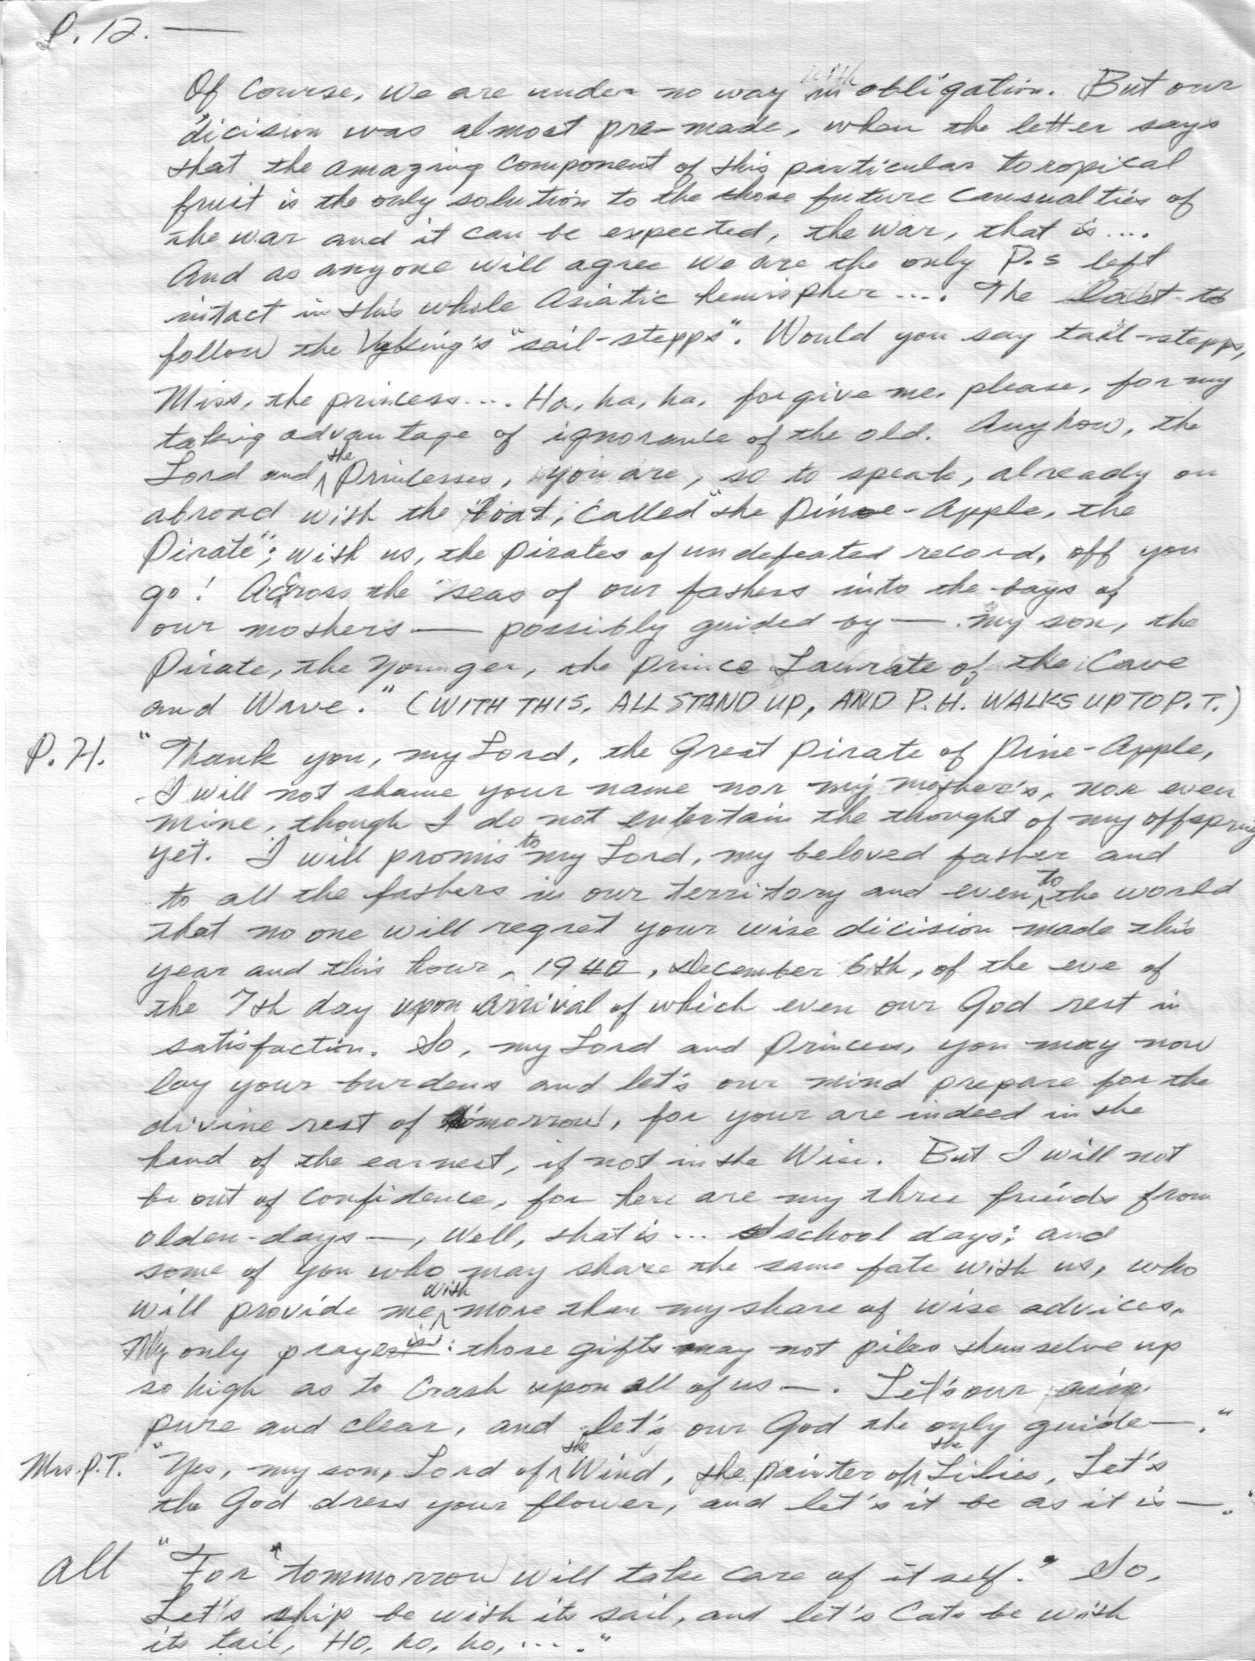 P. 12. —
Of course, we are under no way in obligation. But our
dicision was almost pre-made, when the letter says
that the amazing component of this particular toropical
fruit is the only solution to the those future causualties of
the war and it can be expected, the war, that is....
And as anyone will agree we are the only P.s left
intact in this whole Asiatic hemispher.... The last to
follow the Vyking's "sail-stepps". Would you say tail-stepps,
Miss, the princess.... Ha, ha, ha, forgive me, please, for my
taking advantage of ignorance of the old. Anyhow, the
Lord and the Princesses, you are, so to speak, already on
abroad with the boat, called "the Pine-Apple, the
Pirate"; with us, the pirates of undefeated record, off you
go! Across the seas of our fathers into the bays of
our mothers — possibly guided by — my son, the
Pirate, the Younger, the prince Laurate of the Cave
and Wave." (WITH THIS, ALL STAND UP, AND P.H. WALKS UP TO P.T.)
P.H. "Thank you, my Lord, the Great Pirate of Pine-Apple,
I will not shame your name nor my mother's, nor even
mine, though I do not entertain the thought of my offspring
yet. I will promis to my Lord, my beloved father and
to all the fathers in our territory and even to the world
that no one will regret your wise dicision made this
year and this hour, 1940, December 6th, of the eve of
the 7th day upon arrival of which even our God rest in
satisfaction. So, my Lord and Princess, you may now
lay your burdens and let's our mind prepare for the
divine rest of tomorrow, for your are indeed in the
hand of the earnest, if not in the Wise. But I will not
be out of confidence, for here are my three friends from
olden-days —, well, that is... school days; and
some of you who may share the same fate with us, who
will provide me with more than my share of wise advices.
My only prayer is: those gifts may not piles themselve up
so high as to crash upon all of us —. Let's our aim
pure and clear, and let's our God the only guide —."
Mrs. P.T. "Yes, my son, Lord of the Wind, the painter of the Lilies, Let's
the God dress your flower, and let's it be as it is —."
All "For "tommorrow will take care of it self." So,
Let's ship be with its sail, and let's Cats be with
its tail, Ho, ho, ho, ...."